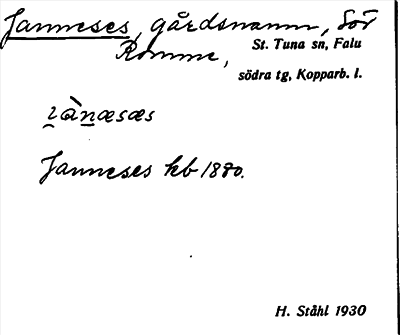 Janneses, gårdsnamn, Sör
Romme, St. Tuna sn, Falu
södra tg, Kopparb. l.
Janneses kb 1880.
H. Ståhl 1930